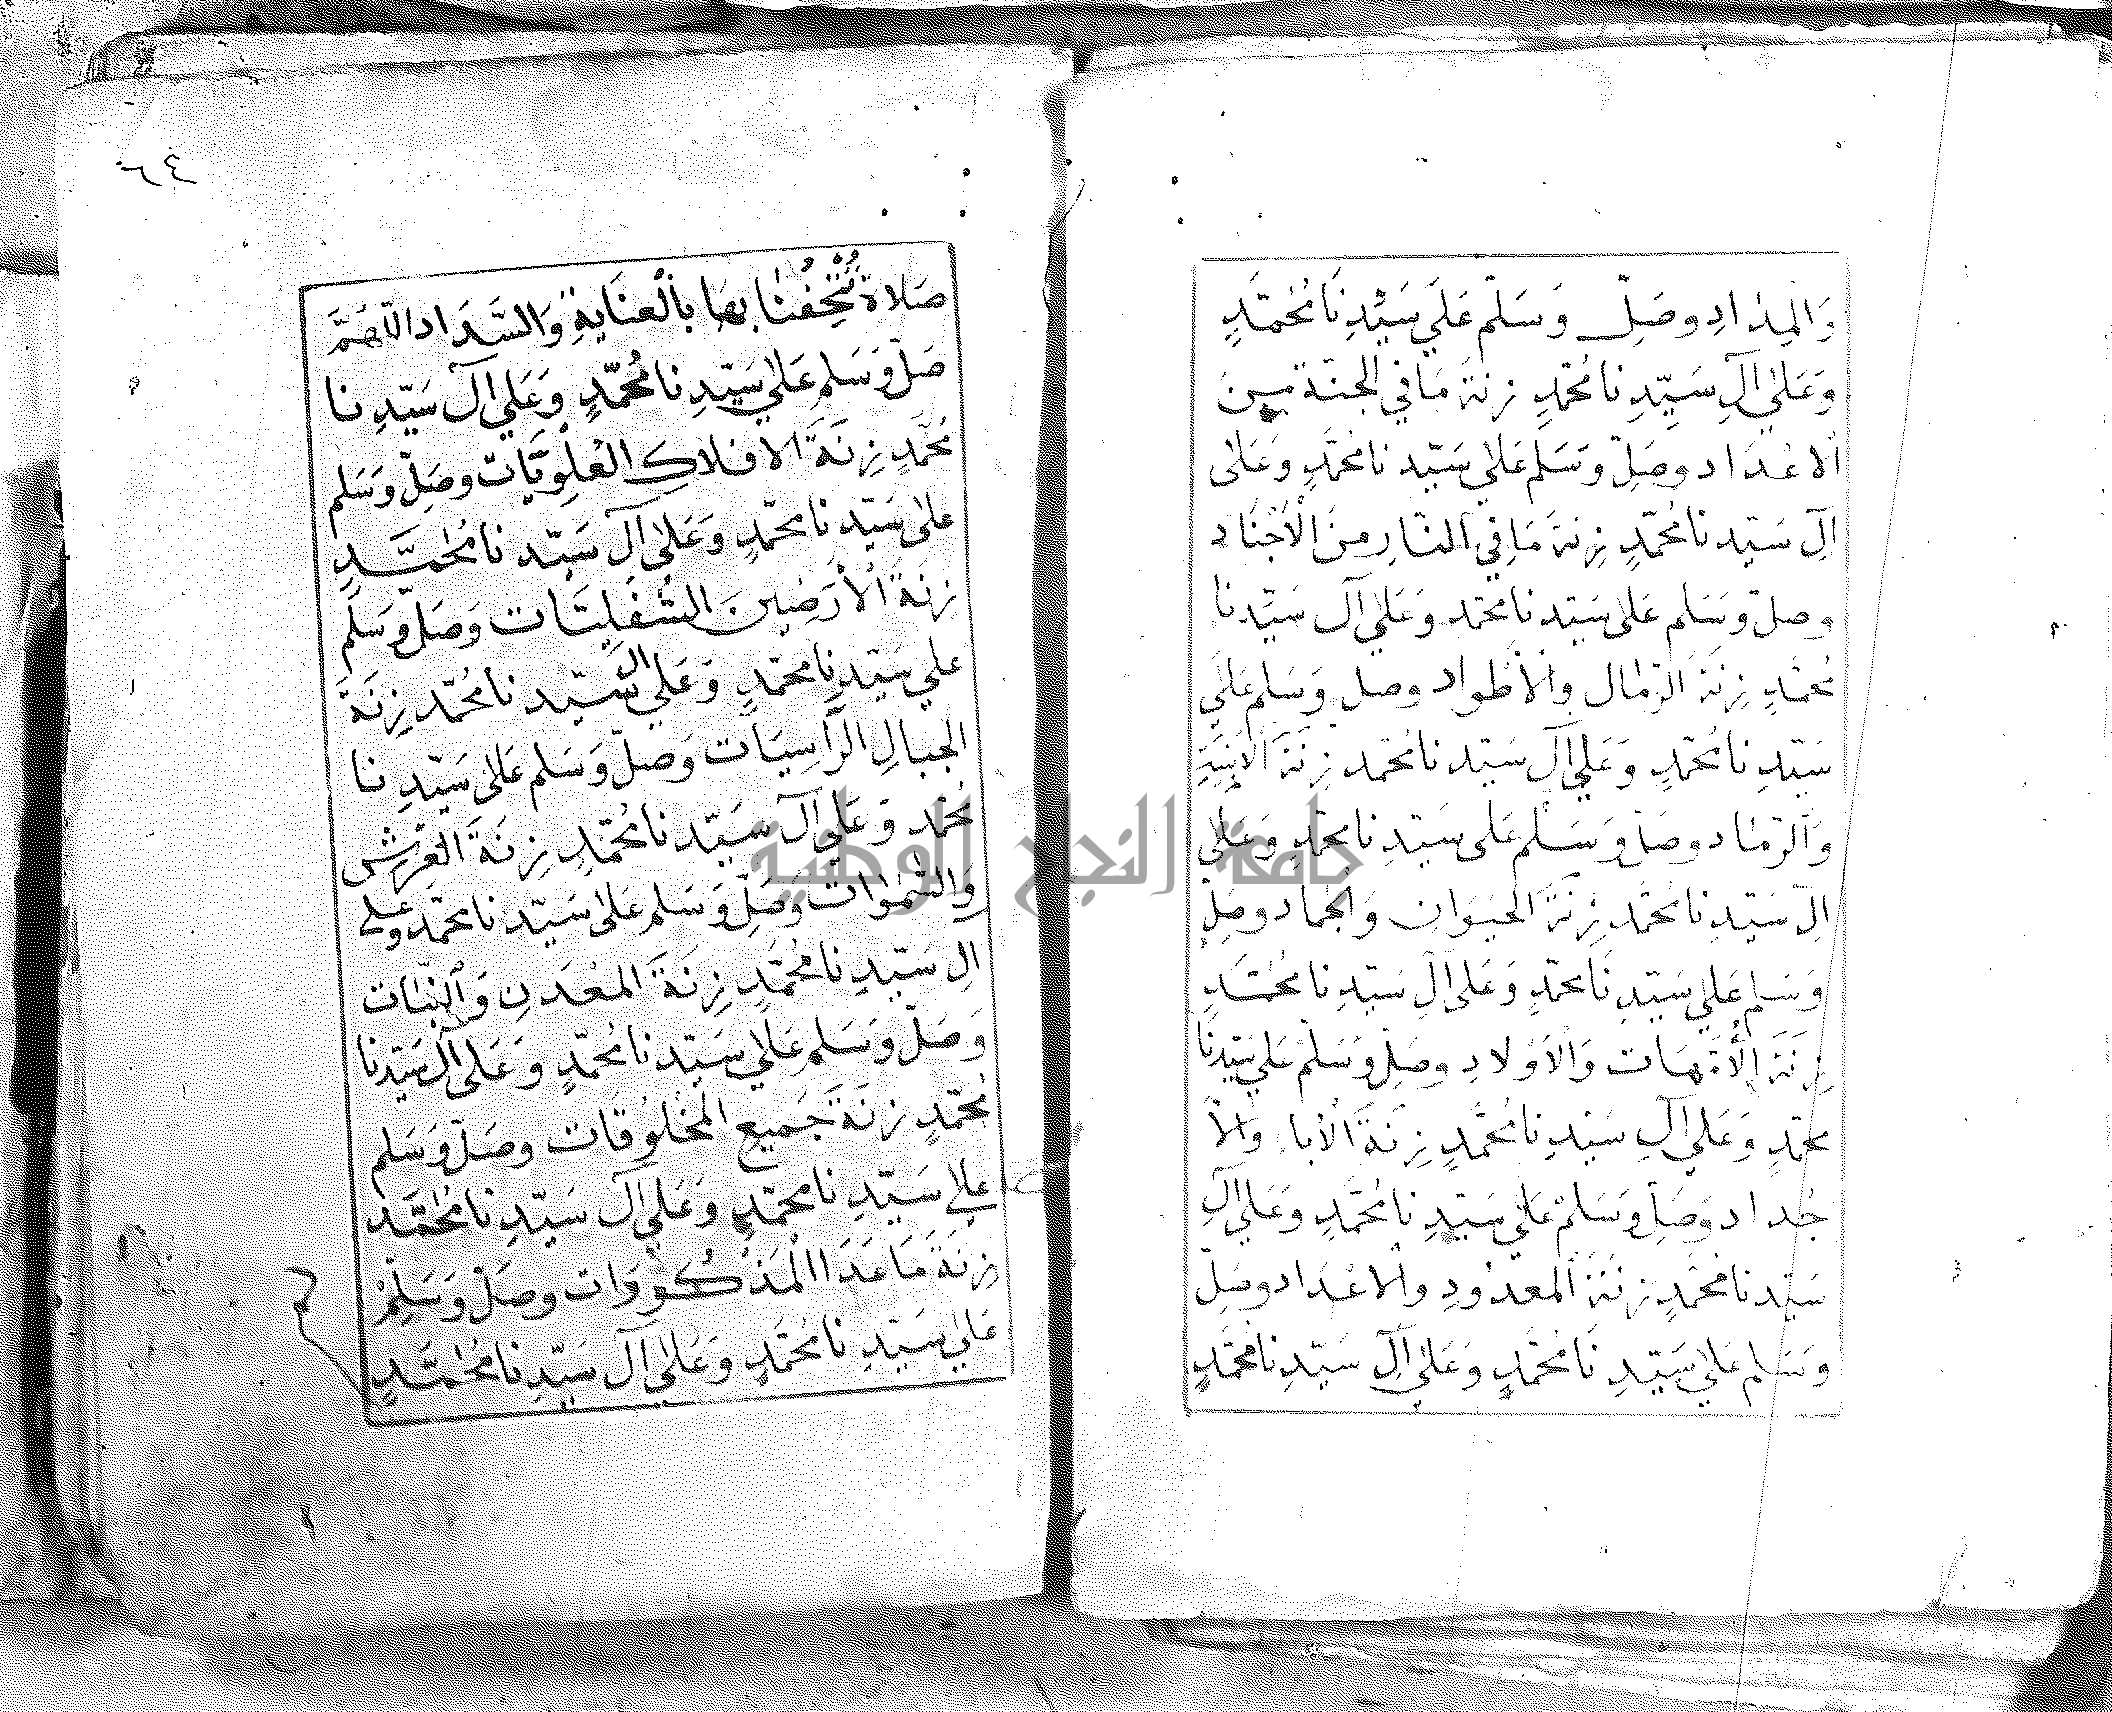 وَالمِدَادِ وصَلِّ وَسَلّم عَلَى سَيِّدِنَا مُحَمّدٍ
وَعَلىٰ آلِ سَيِّدِنا مُحَمّدٍ زِنةَ مَا في الجنّة مِنَ
الاعْدَاد وصَلِّ وَسَلم عَلىٰ سَيّدِنا محَمّدٍ وَعَلىٰ
آلِ سَيّدِنا مُحَمّدٍ زِنةَ مَا فِي النّارِ مِنَ الْأَجْنَاد
وصلّ وَسَلم عَلىٰ سَيّدِنا محَمّد وَعَلىٰ آل سَيّدنا
مُحَمّدٍ زِنَةَ الرّمَال وَالْأطْواد وصلّ وَسَلم عَلَى
سَيّدِنا مُحَمّدٍ وَعَلىٰ آل سَيّدنا مُحَمّد زِنَةَ الْأبْنِيَةِ
وَالرّمَاد وصَلّ وَسَلّم عَلىٰ سَيّدِنا محَمّدٍ وَعَلىٰ
آلِ سَيّدِنا مُحَمّد زِنَةَ الحَيَوَانِ وَالجَمادِ وصَلِّ
وَسَلم عَلىٰ سَيّدِنَا محَمّدٍ وَعَلىٰ آلِ سَيّدِنا مُحَمّدٍ
زِنَةَ الْأُمّهَات وَالاَوْلادِ وصَلِّ وَسَلّمْ عَلىٰ سَيّدِنَا
محمّدٍ وَعَلىٰ آلِ سَيّدِنا مُحَمّدٍ زِنَةَ الْأبا وَالْأ
جْدَاد وَصَلِّ وَسَلمْ عَلىٰ سَيّدِنا مُحَمّدٍ وَعَلىٰ آلِ
سَيّدنا مُحَمّدٍ زِنَةَ المعْدُودِ وَالاعْدَاد وصَلِّ
وَسَلم عَلىٰ سَيّدِنَا مُحَمّدٍ وَعَلىٰ آلِ سَيّدِنا مُحَمّدٍ
٦٤
صَلاةً تُتْحِفُنَا بهَا بِالْعنَايَةِ وَالسَّدَاد اللّهُمَّ
صَلّ وَسَلم عَلىٰ سَيّدِنا مُحَمّدٍ وَعَلىٰ آل سَيّدِنا
مُحَمّدٍ زِنَةَ الافلاكِ العُلْوِيّات وصَلِّ وَسَلم
عَلىٰ سَيّدِنا محَمّدٍ وَعَلىٰ آل سَيّدنا مُحَمَّدٍ
زِنَةَ الْأرَضِينَ السُّفْلِيّات وَصَلّ وَسَلّم
عَلي سَيّدِنا مُحمّدٍ وَعَلىٰ آل سَيّدنا مُحَمّد زِنَةَ
الجبَالِ الرّاسِيَات وَصَلّ وَسَلم عَلىٰ سَيّدِنا
مُحَمّد وَعَلىٰ آل سَيّدنا مُحَمّدٍ زِنَةَ العَرْشِ
وَالسَّمٰوَات وَصَلِّ وَسَلم عَلىٰ سَيّدنا محمّد وعلى
آلِ سَيّدِنا مُحَمّدٍ زِنَةَ المعْدَنِ وَالنّبَات
وَصَلّ وَسَلم عَلىٰ سَيّدنا مُحَمّدٍ وَعَلىٰ آل سَيّدنا
مُحَمّدٍ زنَةَ جَميع المخْلُوقَات وصَلّ وَسَلم
عَلىٰ سَيّدِنا مُحمّدٍ وَعَلىٰ آل سَيّدِنا مُحَمَّد
زِنَةَ مَا عَدَا الْمَذْكُورَات وصَلّ وَسَلِّمْ
عَلىٰ سَيّدِنا مُحَمّدٍ وَعَلىٰ آل سَيّدِنا مُحَمَّدٍ
جامعة النجاح الوطنية